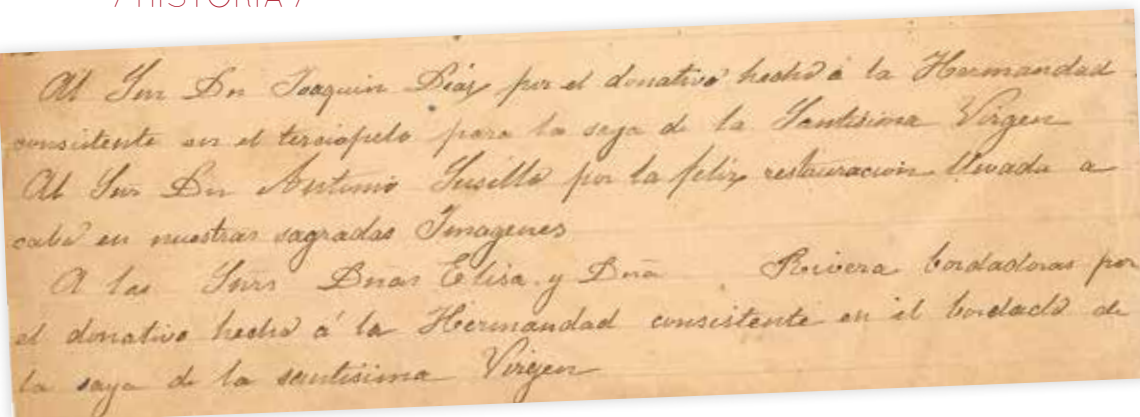 / HISTORIA /
Al Snr Dn Joaquin Diaz por el donativo hecho á la Hermandad
consistente en el terciopelo para la saya de la Santisima Virgen
Al Snr Dn Antonio Susillo por la feliz restauracion llevada a
cabo en nuestras sagradas Imagenes
A las Snrs Dnas Elisa y Dna Rivera bordadoras por
el donativo hecho á la Hermandad consistente en el bordado de
la saya de la santisima Virgen